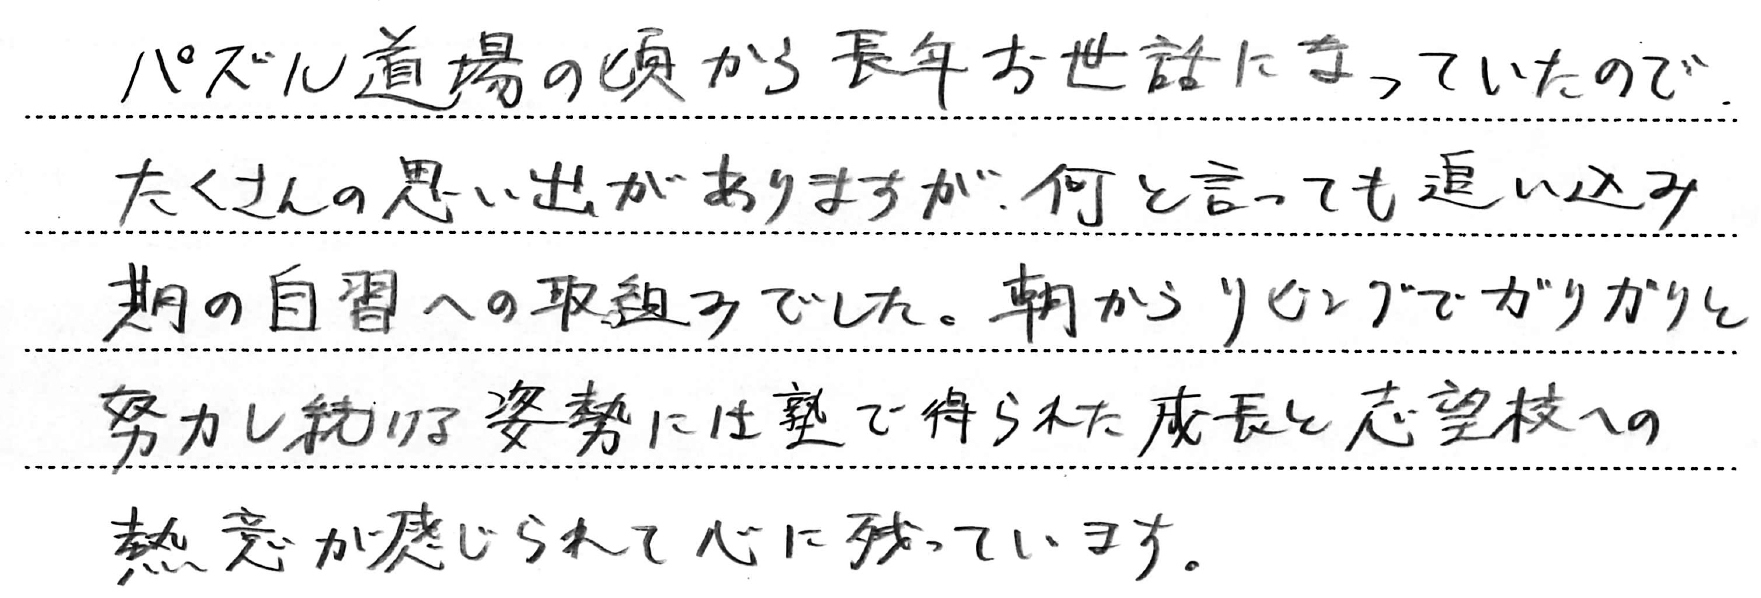 パズル道場の頃から長年お世話になっていたので、
たくさんの思い出がありますが、何と言っても追い込み
期の自習への取組みでした。朝からリビングでガリガリと
努力し続ける姿勢には塾で得られた成長と志望校への
熱意が感じられて心に残っています。